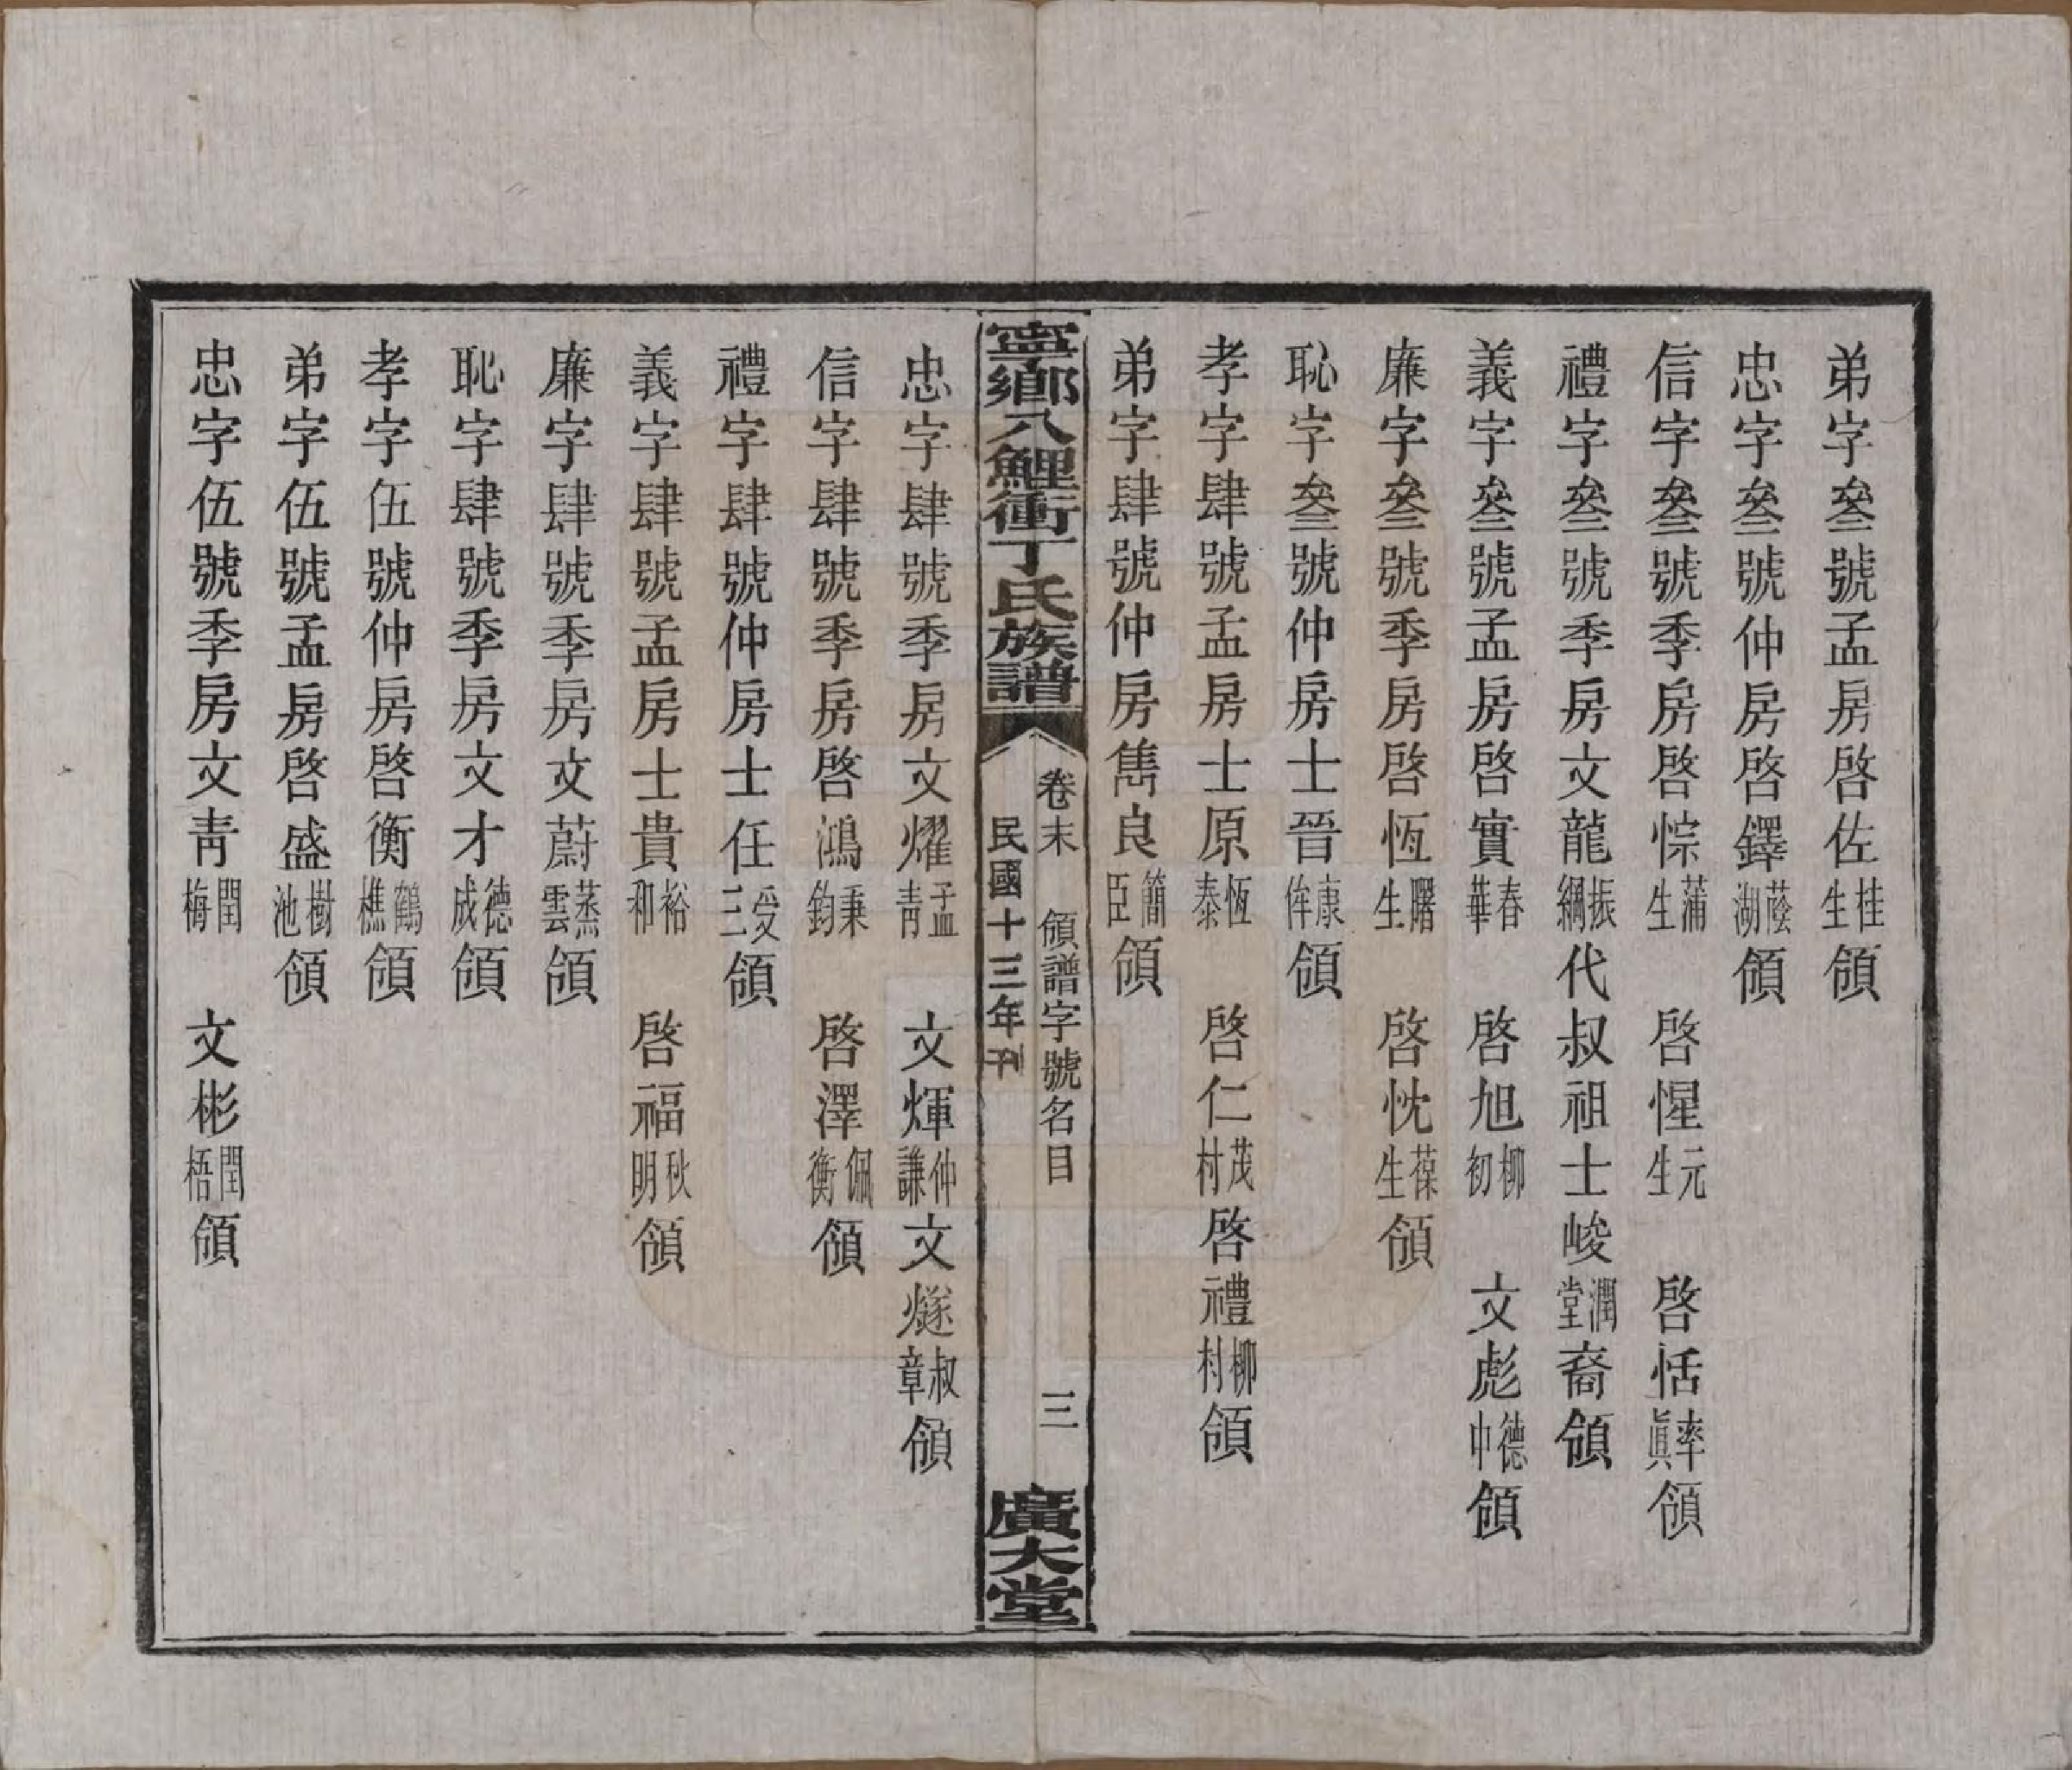 弟字叄號孟房啓佐桂生領
忠字叄號仲房啓鐸蔭湖領
信字叄號季房啓悰蒲生　啓惺元生　啓恬率眞領
禮字叄號季房文龍振綱代叔祖士峻潤堂裔領
義字叄號孟房啓實春華　啓旭柳初　文彪德中領
廉字叄號季房啓恆曙生　啓忱葆生領
恥字叄號仲房士晉康侔領
孝字肆號孟房士原恆泰　啓仁茂村啓禮柳村領
弟字肆號仲房雋良簡臣領
寧鄉八鯉衝丁氏族譜
卷末　領譜字號名目　三
民國十三年刊
廣大堂
忠字肆號季房文燿孟靑　文煇仲謙文燧叔章領
信字肆號季房啓鴻秉鈞　啓澤佩衡領
禮字肆號仲房士任受三領
義字肆號孟房士貴裕和　啓福秋明領
廉字肆號季房文蔚蒸雲領
恥字肆號季房文才德成領
孝字伍號仲房啓衡鶴樵領
弟字伍號孟房啓盛樹池領
忠字伍號季房文靑閏梅　文彬閏梧領